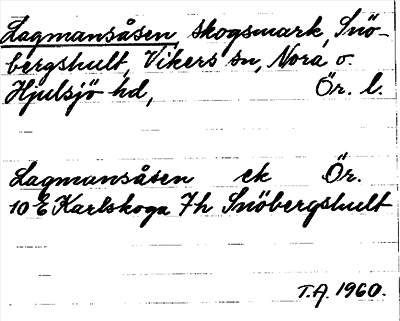 Lagmansåsen, skogsmark, Snö-
bergshult, Vikers sn, Nora o.
Hjulsjö hd, Ör. l.
Lagmansåsen ek Ör.
10 E Karlskoga 7h Snöbergshult
T.A. 1960.